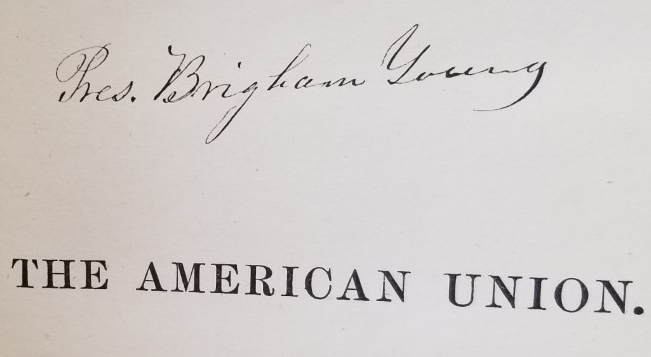 Pres. Brigham Young
THE AMERICAN UNION.